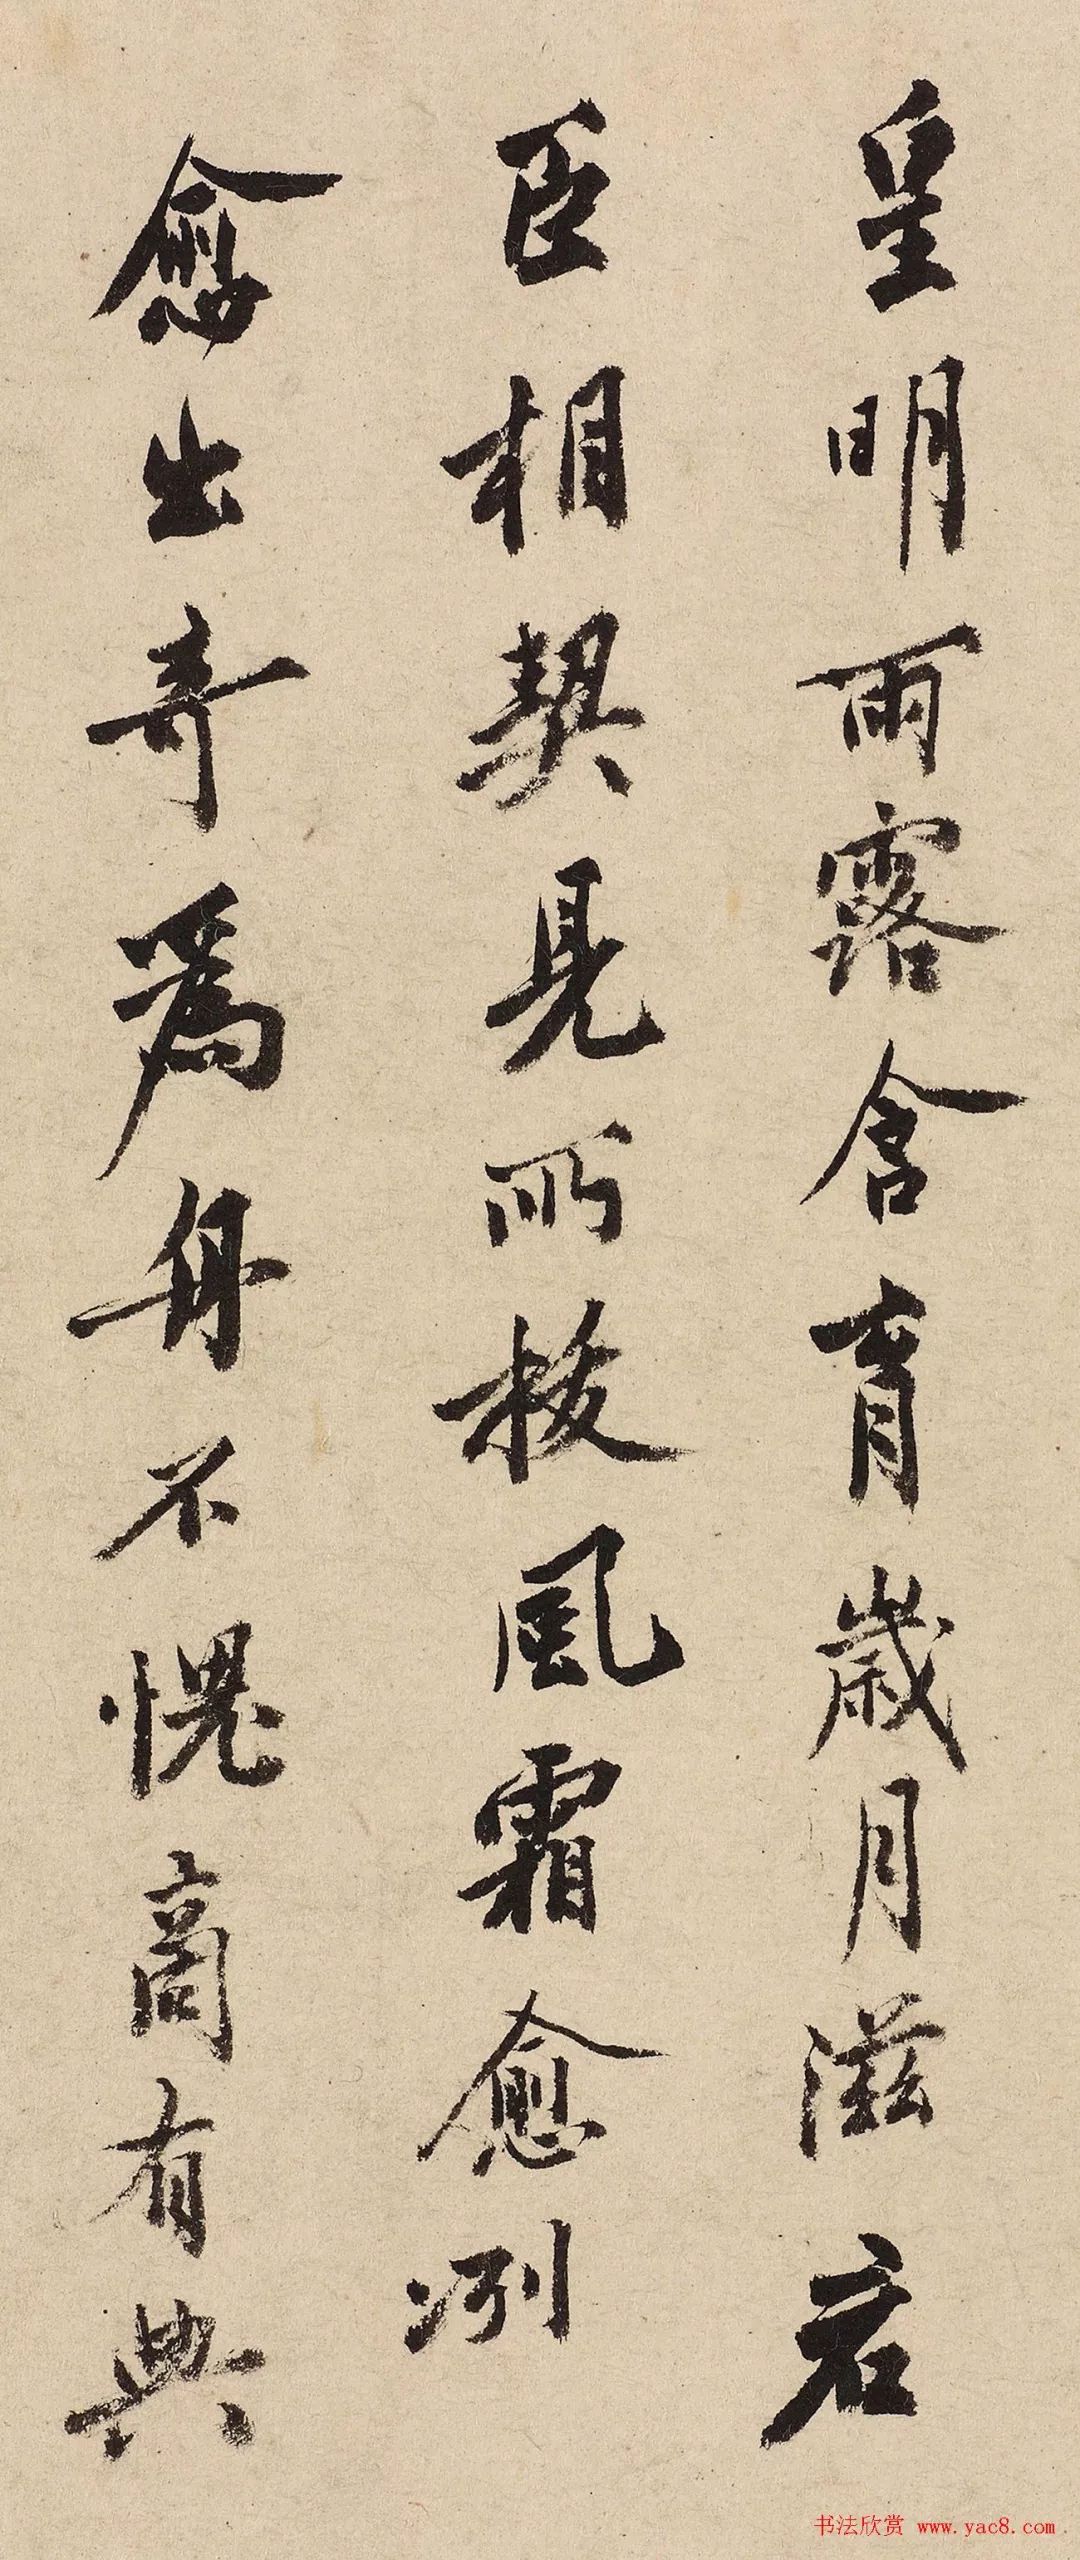 皇明雨露含育歲月滋君
臣相契見所拔風霜愈冽
愈出奇為舟不愧商有典
书法欣赏 www.yac8.com